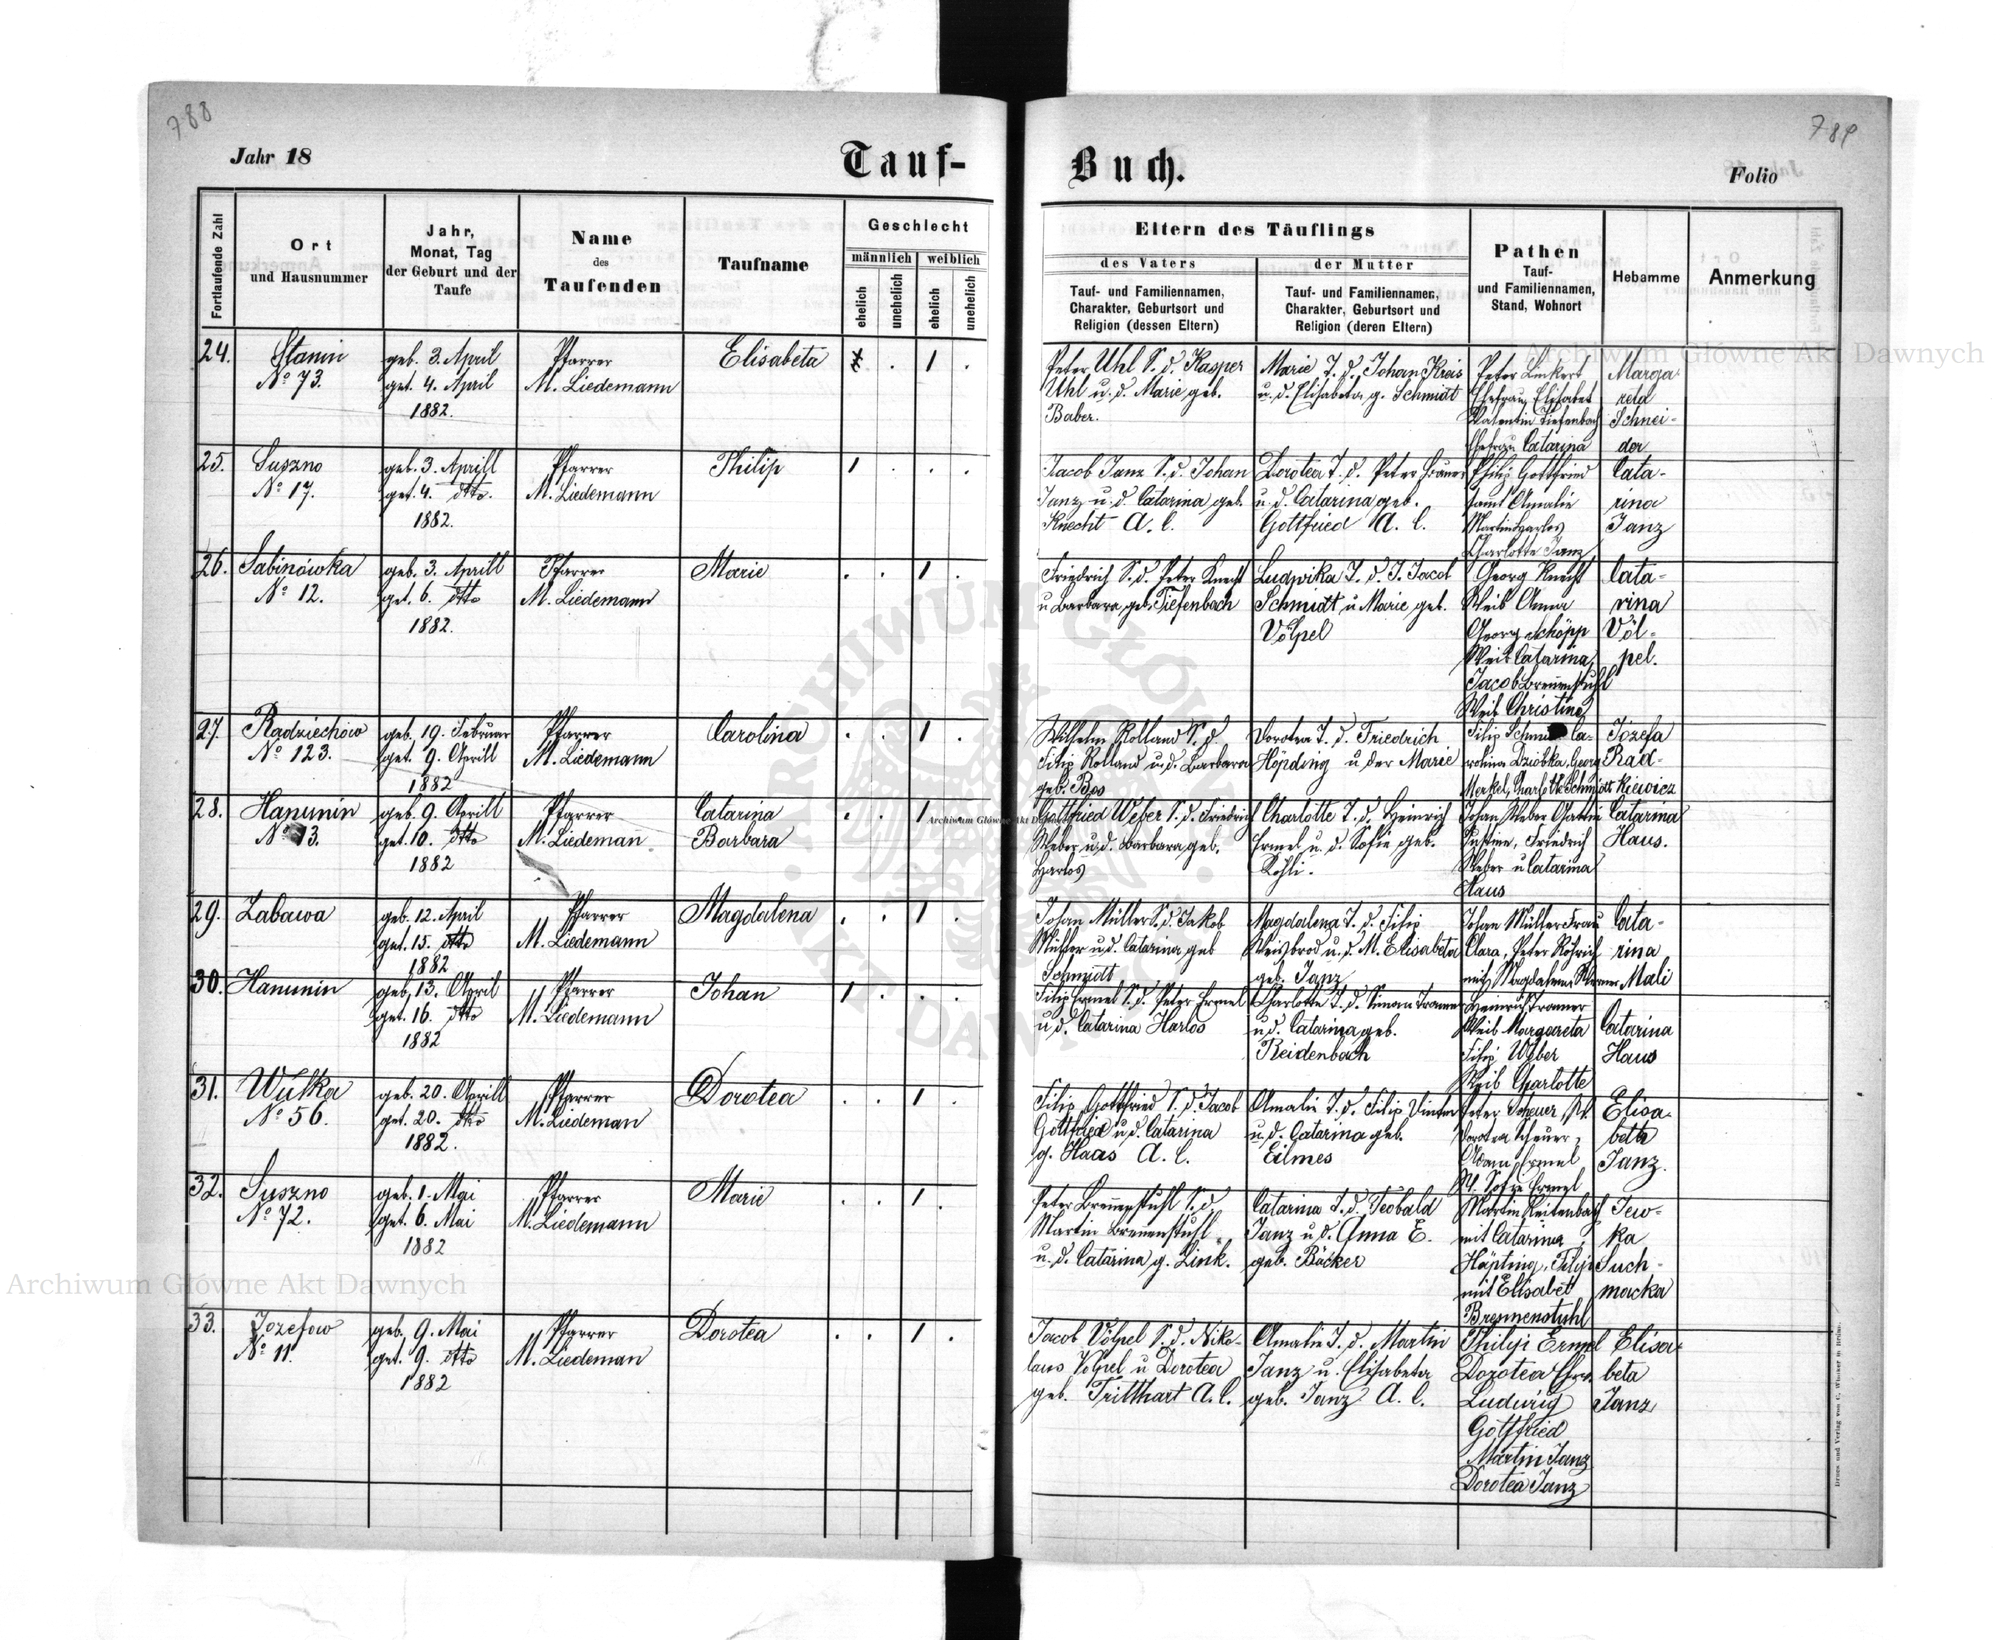 788
789
Jahr 18
Tauf-
Buch.
Folio
Fortlaufende Zahl
Ort
und Hausnummer
Jahr,
Monat, Tag
der Geburt und der
Taufe
Name
des
Taufenden
Taufname
Geschlecht
männlich
weiblich
ehelich
unehelich
ehelich
unehelich
Eltern des Täuflings
des Vaters
Tauf- und Familiennamen,
Charakter, Geburtsort und
Religion (dessen Eltern)
der Mutter
Tauf- und Familiennamen,
Charakter, Geburtsort und
Religion (deren Eltern)
Pathen
Tauf-
und Familiennamen,
Stand, Wohnort
Hebamme
Anmerkung
24.
Stanin
No 73.
geb. 3. April
get. 4. April
1882.
Pfarrer
M. Liedemann
Elisabeta
1
Peter Uhl S. d. Kasper
Uhl u. d. Marie geb.
Baber.
Marie T. d. Johan Kreis
u. d. Elisabeta g. Schmidt
Peter Linkert
Ehefrau Elisabet
Valentin Tiefenbach
Ehefrau Catarina
Marga
reta
Schnei-
der
25.
Suszno
No 17.
geb. 3. Aprill
get. 4. dtto.
1882.
Pfarrer
M. Liedemann
Philip
1
Jacob Janz S. d. Johan
Janz u. d. Catarina geb.
Knecht A. C.
Dorotea T. d. Peter
u. d. Catarina geb.
Gottfried A. C.
Philip Gottfried
samt Amalie
Martin Harlos
Charlotte Janz
Cata-
rina
Janz
26.
Sabinówka
No 12.
geb. 3. Aprill
get. 6. dtto
1882.
Pfarrer
M. Liedemann
Marie
1
Friedrich S. d. Peter Knecht
u Barbara geb. Tiefenbach
Ludwika T. d. J. Jacob
Schmidt u Marie geb.
Völpel
Georg Knecht
Weib Anna
Georg Schöpp
Weib Catarina,
Jacob Brennenstuhl
Weib Christine
Cata-
rina
Völ-
pel.
27.
Radziechów
No 123.
geb. 19. Februar
get. 9. Aprill
1882
Pfarrer
M. Liedemann
Carolina
1
Wilhelm Rolland S. d.
Filip Rolland u. d. Barbara
geb. Bos
Dorotea T. d. Friedrich
Höpding u der Marie
Filip Ca-
rolina Dziobka, Georg
Merkel, Charlotte Schmidt
Józefa
Rad-
kiewicz
28.
Hanunin
No 13.
geb. 9. Aprill
get. 10. dtto
1882
Pfarrer
M. Liedeman
Catarina
Barbara
1
Gottfried Weber S. d. Friedrich
Weber u. d. Barbara geb.
Harlos
Charlotte T. d. Heinrich
Ermel u. d. Sofie geb.
Köhli.
Johan Weber Gattin
Justine, Friedrich
Weber u Catarina
Haus
Catarina
Haus.
29.
Zabawa
geb. 12. April
get. 15. dtto
1882
Pfarrer
M. Liedemann
Magdalena
1
Johan Müller S. d. Jakob
Müller u. d. Catarina geb
Schmidt
Magdalena T. d. Filip
Weissbrod u. d. M. Elisabeta
geb. Janz
Johan Müller Frau
Clara, Peter Röhrich
mit Magdalena
Cata-
rina
Mali
30.
Hanunin
geb. 13. April
get. 16. dtto
1882
Pfarrer
M. Liedemann
Johan
1
Filip Ermel S. d. Peter Ermel
u. d. Catarina Harlos
Charlotte T. d. Simon
u. d. Catarina geb.
Reidenbach
Heinrich
Weib Margareta
Filip Weber
Weib Charlotte
Catarina
Haus
31.
Wulka
No 56.
geb. 20. Aprill
get. 20. dtto
1882.
Pfarrer
M. Liedeman
Dorotea
1
Filip Gottfried S. d. Jacob
Gottfried u. d. Catarina
g. Haas A. C.
Amalie T. d. Filip
u. d. Catarina geb.
Eilmes
Peter Scheuer,
Dorotea Scheuer,
Adam Ermel
W. Sofie Ermel
Elisa-
beth
Janz.
32.
Suszno
No 72.
geb. 1. Mai
get. 6. Mai
1882
Pfarrer
M. Liedemann
Marie
1
Peter Brennenstuhl S. d.
Martin Brennenstuhl
u. d. Catarina g. Link.
Catarina T. d. Teobald
Janz u. d. Anna E.
geb. Bäcker
Martin Reitenbach
mit Catarina
Häpting, Filip
mit Elisabet
Brennenstuhl
Tew-
ka
Such-
macka
33.
Jozefow
No 11.
geb. 9. Mai
get. 9. dtto
1882
Pfarrer
M. Liedeman
Dorotea
1
Jacob Völpel S. d. Niko-
laus Völpel u Dorotea
geb. Tritthart A. C.
Amalie T. d. Martin
Janz u. Elisabeta
geb. Janz A. C.
Philip Ermel
Dorotea
Ludwig
Gottfried
Martin Janz
Dorotea Janz
Elisa-
beta
Janz
Archiwum Główne Akt Dawnych
Archiwum Główne Akt Dawnych
Archiwum Główne Akt Dawnych
ARCHIWUM GŁÓWNE AKT DAWNYCH